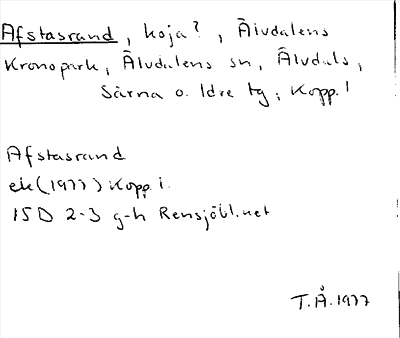 Afstasrand, koja?, Älvdalens
Kronopark, Älvdalens sn, Älvdals,
Särna o. Idre tg; Kopp. l
Afstasrand
ek (1977) Kopp. l.
15D 2-3 g-h Rensjöbl.net
T.Å. 1977